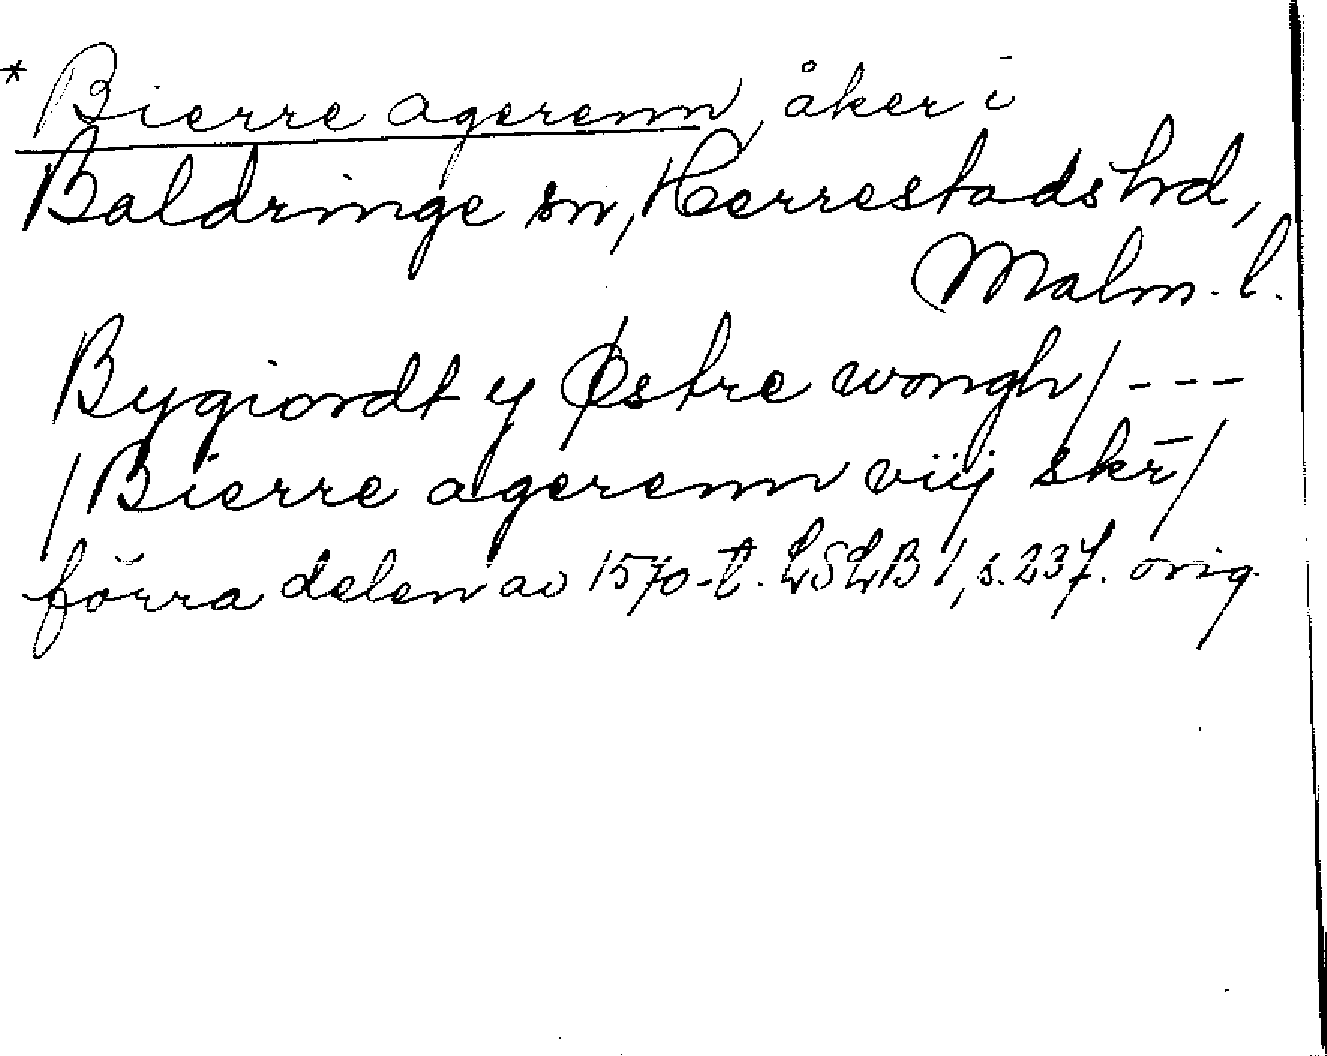 * Bierre agerenn, åker i
Baldringe sn, Herrestads hd,
Malm. l.
Bygiordt y Østre wongh / ---
/ Bierre agerenn viij skr̄ /
förra delen av 1570-t. LSLB 1, s. 237. orig.